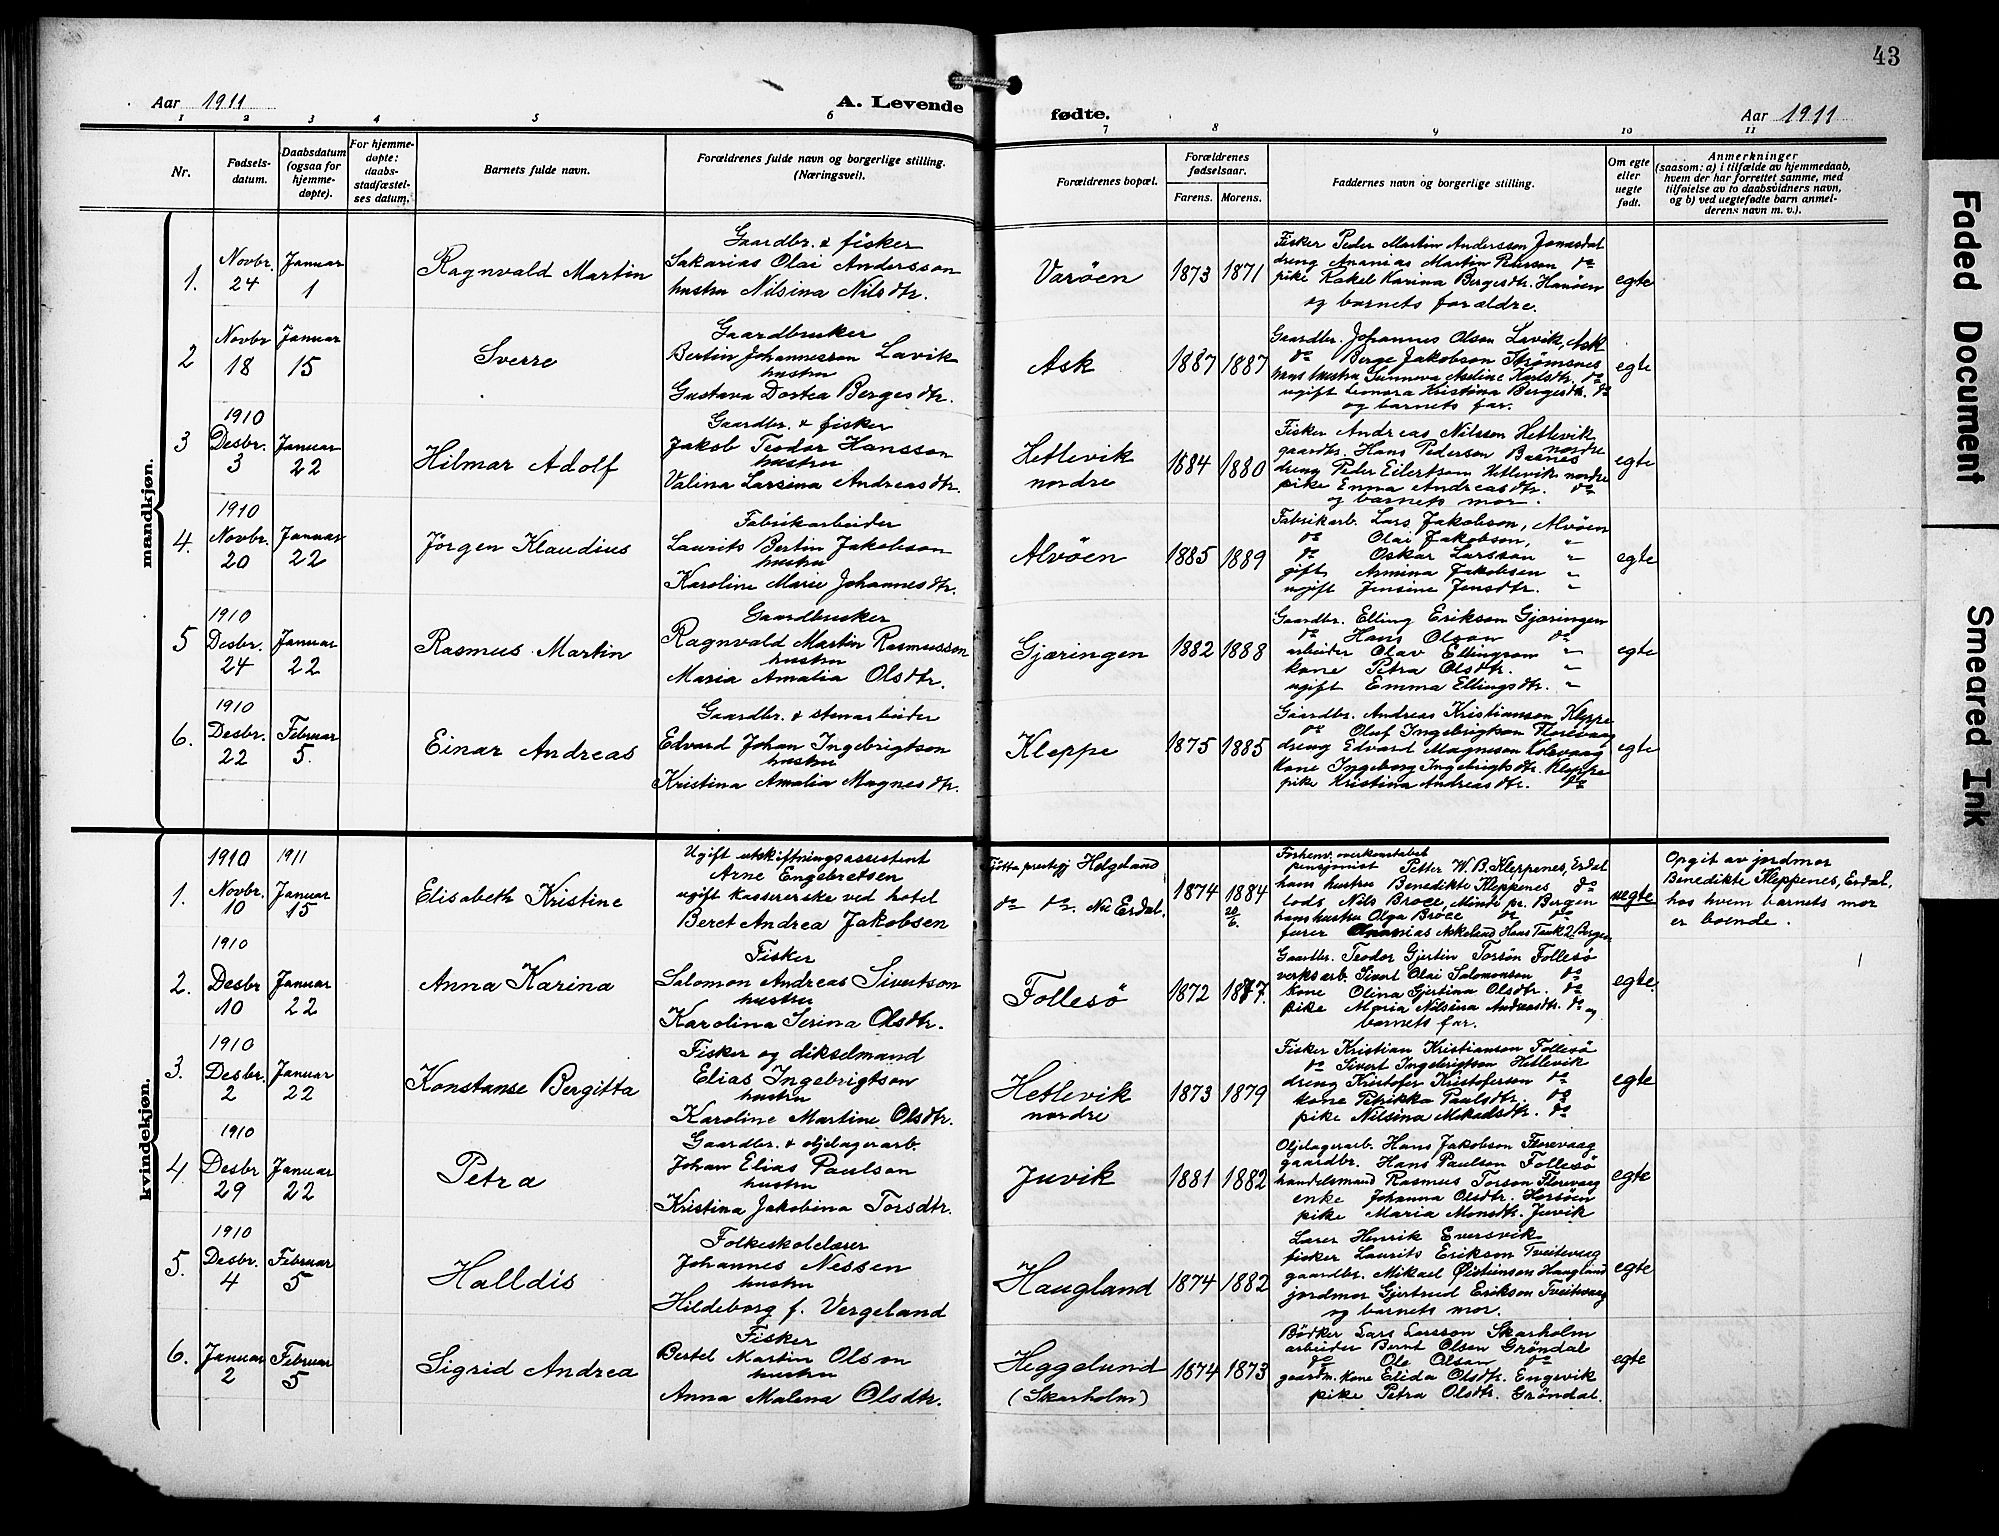 43
Aar 1911
A. Levende fødte.
Aar 1911
1 2 3 4 5 6 7 8 9 10 11
Nr.
Fødsels-
datum.
Daabsdatum
(ogsaa for
hjemme-
døpte).
For hjemme-
døpte:
daabs-
stadfæstel-
ses datum.
Barnets fulde navn.
Forældrenes fulde navn og borgerlige stilling.
(Næringsvei).
Forældrenes bopæl.
Forældrenes
fødselsaar.
Farens. Morens.
Faddernes navn og borgerlige stilling.
Om egte
eller
uegte
født.
Anmerkninger
(saasom: a) i tilfælde av hjemmedaab,
hvem der har forrettet samme, med
tilføielse av to daabsvidners navn,
og b) ved uegtefødte barn anmel-
derens navn m. v.).
mandkjøn.
1.
Novbr.
24
Januar
1
Ragnvald Martin
Gaardbr. & fisker
Sakarias Olai Andersson
hustru Nilsina Nilsdtr.
Varöen
1873
1871
Fisker Peder Martin Andersson Jonasdal
dreng Ananias Martin do
pike Rakel Karina Bergesdtr. Hanöen
og barnets forældre.
egte
2
Novbr
18
Januar
15
Sverre
Gaardbruker
Bertin Johannesson Lavik
hustru
Gustava Dortea Bergesdtr.
Ask
1887
1887
Gaardbr. Johannes Olson Lavik, Ask
do Berge Jakobson Strømsnes
hans hustru Sunneva Aseline Karlsdtr. do
ugift Leonora Kristina Bergesdtr. do
og barnets far.
egte
3
1910
Desbr.
3
Januar
22
Hilmar Adolf
Gaardbr. & fisker
Jakob Teodor Hansson
hustru
Valina Larsina Andreasdtr.
Hetlevik
nordre
1884
1880
Fisker Andreas Nilsson Hetlevik
nordre
gaardbr. Hans Pederson Barnes
dreng Peder Eilertson Hetlevik nordre
pike Emma Andreasdtr. do
og barnets mor.
egte
4.
1910
Novbr.
20
Januar
22
Jörgen Klaudius
Fabrikarbeider
Laurits Bertin Jakobson
hustru
Karoline Marie Johannesdtr.
Alvöen
1885
1889
Fabrikarb. Lars Jakobson, Alvöen
do Olai Jakobson, "
do Oskar Larsson "
gift Armina Jakobsen "
ugift Jensine Jensdtr. "
egte
5
1910
Desbr.
24
Januar
22
Rasmus Martin
Gaardbruker
Ragnvald Martin Rasmusson
hustru
Maria Amalia Olsdtr.
Gjæringen
1882
1888
Gaardbr. Elling Erikson Gjæringen
do Hans Olson do
arbeider Olav Ellingson "
kone Petra Olsdtr. "
ugift Emma Ellingsdtr. "
egte
6.
1910
Desbr.
22
Februar
5.
Einar Andreas
Gaardbr. & stenarbeider
Edvard Johan Ingebrigtson
hustru
Kristina Amalia Magnesdtr.
Kleppe
1875
1885
Gaardbr. Andreas Kristianson Kleppe
do Oluf Ingebrigtson Florevaag
dreng Edvard Magneson
kone Ingeborg Ingebrigtsdtr. Kleppe
pike Kristina Andreasdtr. do
egte
kvindekjøn.
1.
1910
Novbr.
10
1911
Januar
15
Elisabeth Kristine
Ugift utskiftningsassistent
Arne Engebretsen
ugift kassererske ved hotel
Beret Andrea Jakobsen
Tjötta prestegj Helgeland
do do. Nu Erdal.
1874
1884
20/6.
Forhenv. overkonstabel
pensjonist Petter W. B. Kleppenes, Erdal
hans hustru Benedikte Kleppenes do
lods Nils Broce, Minde pr. Bergen
hans hustru Olga Broce do do
fører Ananias Askeland Hans Tank 2 Bergen
uegte
Opgit av jordmor
Benedikte Kleppenes, Erdal,
hos hvem barnets mor
er boende.
2.
1910
Desbr
10
Januar
22
Anna Karina
Fisker
Salomon Andreas Sivertson
hustru
Karolina Serina Olsdtr.
Follesö
1872
1877.
Gaardbr. Teodor Gjertin Torsön Follesö
verksarb. Sivert Olai Salomonson do
kone Olina Gjertina Olsdtr. do
pike Maria Nilsina Andreasdtr. do og
barnets far.
egte.
3.
1910
Desbr.
2
Januar
22
Konstanse Bergitta
Fisker og dikselmand
Elias Ingebrigtson
hustru
Karoline Martine Olsdtr.
Hetlevik
nordre
1873
1879
Fisker Kristian Kristianson Follesö
do Sivert Ingebrigtson Hetlevik
dreng Kristofer Kristoferson do
kone Petrikka Paulsdtr. do
pike Nilsina Mekalsdtr. do
egte
4.
1910
Desbr
29
Januar
22
Petra
Gaardbr. & oljelagerarb.
Johan Elias Paulson
hustru
Kristina Jakobina Torsdtr.
Juvik
1881
1882
Oljelagerarb. Hans Jakobson Florevaag
gaardbr. Hans Paulson Follesö
handelsmand Rasmus Torson Florevaag
enke Johanna Olsdtr. Horsöen
pike Maria Monsdtr. Juvik
egte
5.
1910
Desbr.
4
Februar
5
Halldis
Folkeskolelærer
Johannes Nessen
hustru
Hildeborg f. Vergeland
Haugland
1874
1882
Lærer Henrik Eversvik
fisker Laurits Erikson Tveitevaag
gaardbr. Mikael Øisteinson Haugland
jordmor Gjertrud Erikson Tveitevaag
og barnets mor.
egte
6.
Januar
2
Februar
5
Sigrid Andrea
Fisker
Bertel Martin Olson
hustru
Anna Malena Olsdtr.
Heggelund
(Skarholm)
1874
1873
Bödker Lars Larsson Skarholm
arbeider Bernt Olsen Gröndal
do Ole Olsan do
gaardm. kone Elida Olsdtr. Engevik
pike Petra Olsdtr. Gröndal.
egte
Faded Document
Smeared Ink